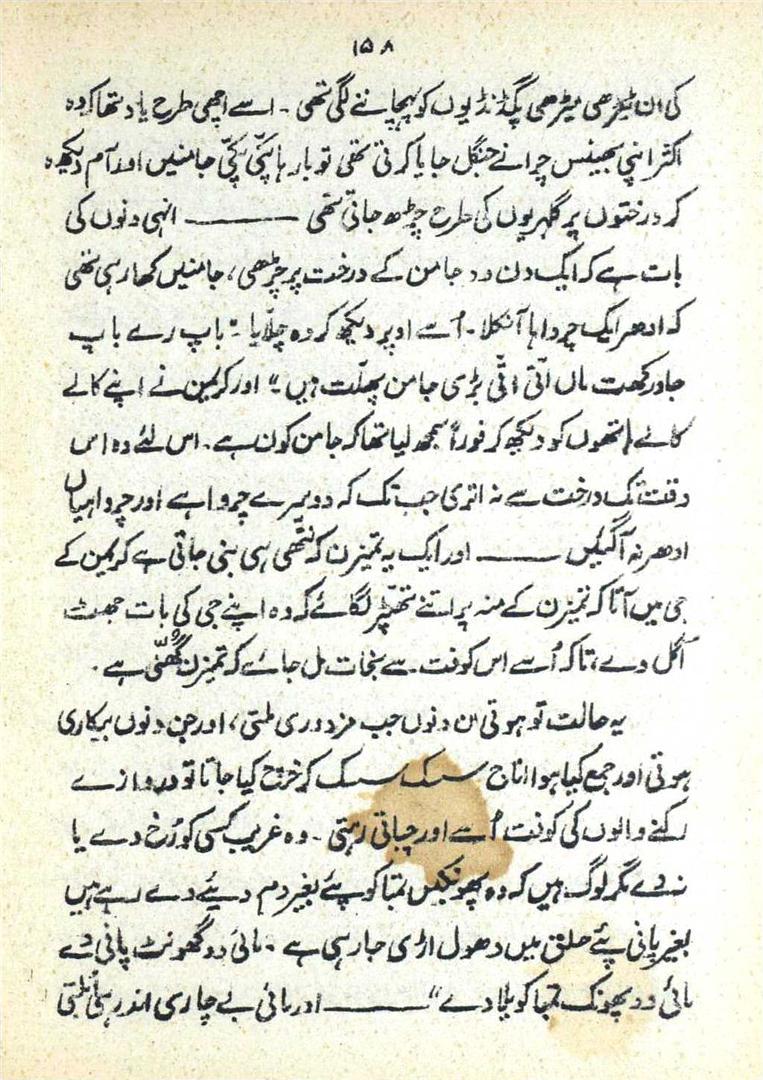 ۱۵۸
کی ان ٹیڑھی میڑھی پگڈنڈیوں کو پہچاننے لگی تھی ۔ اسے اچھی طرح یاد تھا کہ وہ
اکثر اپنی بھینس چرانے جنگل جایا کرتی تھی تو بارہا پکّی پکّی جامنیں اور آم دیکھ
کر درختوں پر گلہریوں کی طرح چڑھ جاتی تھی ——— انہی دنوں کی
بات ہے کہ ایک دن وہ جامن کے درخت پر چڑھی، جامنیں کھا رہی تھی
کہ ادھر ایک چرواہا آ نکلا ۔ اُسے اوپر دیکھ کر وہ چلّایا ۔" باپ رے باپ
جا درکھت ماں اتّی اتّی بڑی جامن پھلّت ہیں ۔" اور کریمن نے اپنے کالے
کالے ہاتھوں کو دیکھ کر فوراً سمجھ لیا تھا کہ جامن کون ہے ۔ اس لئے وہ اس
وقت تک درخت سے نہ اتری جب تک کہ دوسرے چرواہے اور چرواہیاں
ادھر نہ آ گئیں ——— اور ایک یہ تمیزن کہ ننّھی سی بنی جاتی ہے کریمن کے
جی میں آتا کہ تمیزن کے منہ پر اتنے تھپّڑ لگائے کہ وہ اپنے جی کی بات جھٹ
اُگل دے، تاکہ اُسے اس کوفت سے نجات مل جائے کہ تمیزن گھُنّی ہے ۔
یہ حالت تو ہوتی ان دنوں جب مزدوری ملتی، اور جن دنوں بیکاری
ہوتی اور جمع کیا ہوا اناج سسک سسک کر خرچ کیا جاتا تو دروازے
رکنے والوں کی کوفت اُسے اور چباتی رہتی ۔ وہ غریب کسی کو رُخ دے یا
نہ دے مگر لوگ ہیں کہ دو پھونکیں تمباکو پئے بغیر دم دیئے دے رہے ہیں
بغیر پانی پئے حلق میں دھول اڑی جا رہی ہے ۔ مائی دو گھونٹ پانی دے
مائی دو پھونک تمباکو پلا دے" ——— اور مائی بے چاری اندر ہی